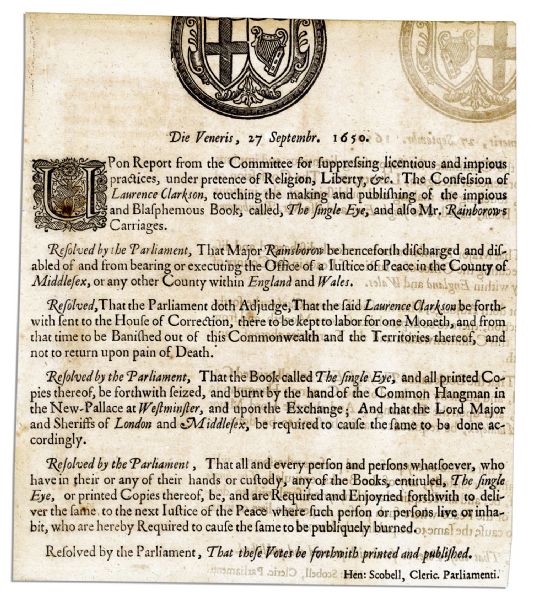 Die Veneris, 27 Septembr. 1650.
UPon Report from the Committee for suppressing licentious and impious
practices, under pretence of Religion, Liberty, &c. The Confession of
Laurence Clarkson, touching the making and publishing of the impious
and Blasphemous Book, called, The single Eye, and also Mr. Rainborows
Carriages.
Resolved by the Parliament, That Major Rainsborow be henceforth discharged and dis-
abled of and from bearing or executing the Office of a Iustice of Peace in the County of
Middlesex, or any other County within England and Wales.
Resolved, That the Parliament doth Adjudge, That the said Laurence Clarkson be forth-
with sent to the House of Correction, there to be kept to labor for one Moneth, and from
that time to be Banished out of this Commonwealth and the Territories thereof, and
not to return upon pain of Death.
Resolved by the Parliament, That the Book called The single Eye, and all printed Co-
pies thereof, be forthwith seized, and burnt by the hand of the Common Hangman in
the New-Pallace at Westminster, and upon the Exchange; And that the Lord Major
and Sheriffs of London and Middlesex, be required to cause the same to be done ac-
cordingly.
Resolved by the Parliament, That all and every person and persons whatsoever, who
have in their or any of their hands or custody, any of the Books, entituled, The single
Eye, or printed Copies thereof, be, and are Required and Enjoyned forthwith to deli-
ver the same to the next Iustice of the Peace where such person or persons live or inha-
bit, who are hereby Required to cause the same to be publiquely burned.
Resolved by the Parliament, That these Votes be forthwith printed and published.
Hen: Scobell, Cleric. Parliamenti.